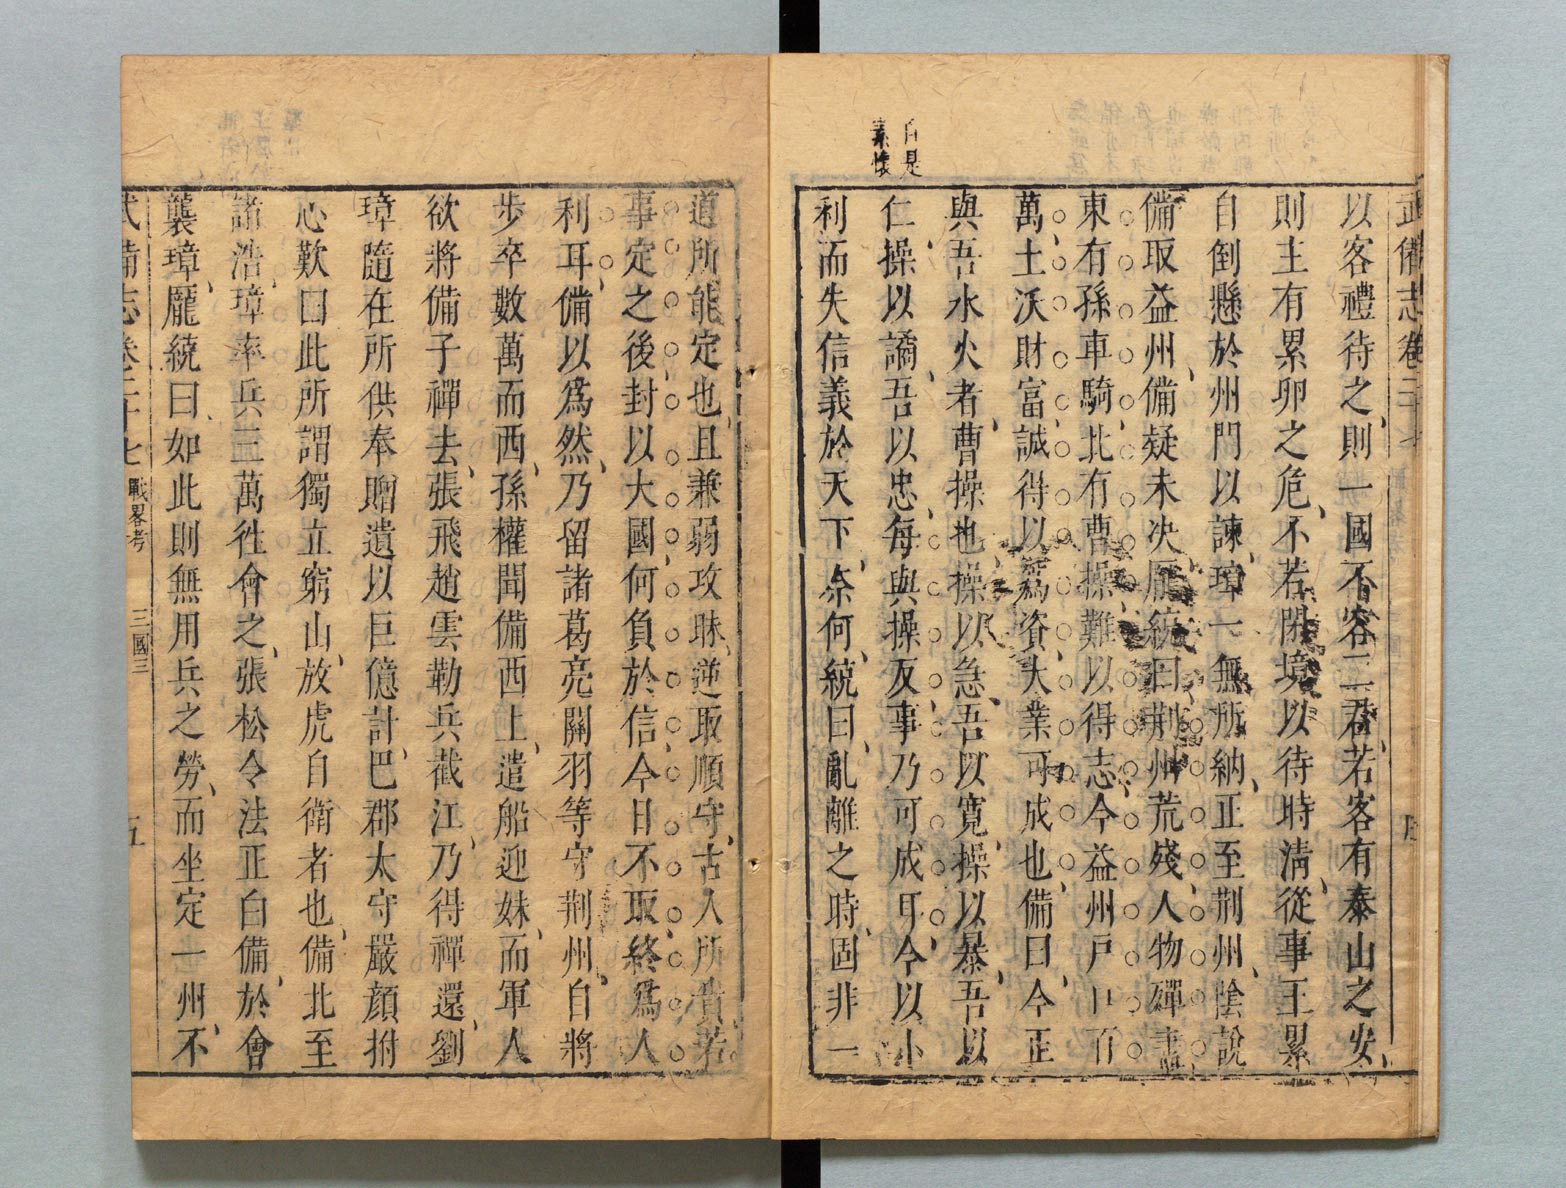 武備志卷二十七
自是
素懷
以客禮待之則一國不容二君若客有泰山之安
則主有累卵之危不若閉境以待時清從事王累
自倒懸於州門以諫璋一無所納正至荆州陰說
備取益州備疑未決龐統曰荆州荒殘人物殫盡
東有孫車騎北有曹操難以得志今益州戸口百
萬土沃財富誠得以爲資大業可成也備曰今正
與吾水火者曹操也操以急吾以寛操以暴吾以
仁操以譎吾以忠每與操反事乃可成耳今以小
利而失信義於天下奈何統曰亂離之時固非一
道所能定也且兼弱攻昧逆取順守古人所貴若
事定之後封以大國何負於信今日不取終爲人
利耳備以爲然乃留諸葛亮關羽等守荆州自將
步卒數萬而西孫權聞備西上遣船迎妹而軍人
欲將備子禪去張飛趙雲勒兵截江乃得禪還劉
璋隨在所供奉贈遺以巨億計巴郡太守嚴顔拊
心歎曰此所謂獨立窮山放虎自衛者也備北至
諸浩璋率兵三萬徃會之張松令法正白備於會
襲璋龐統曰如此則無用兵之勞而坐定一州不
武備志卷二十七 戰畧考 三國三 五